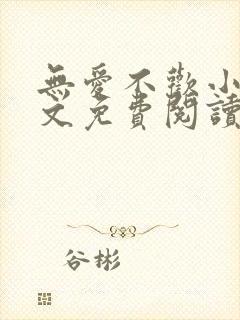 無愛不歡小
文免費閱讀
谷彬